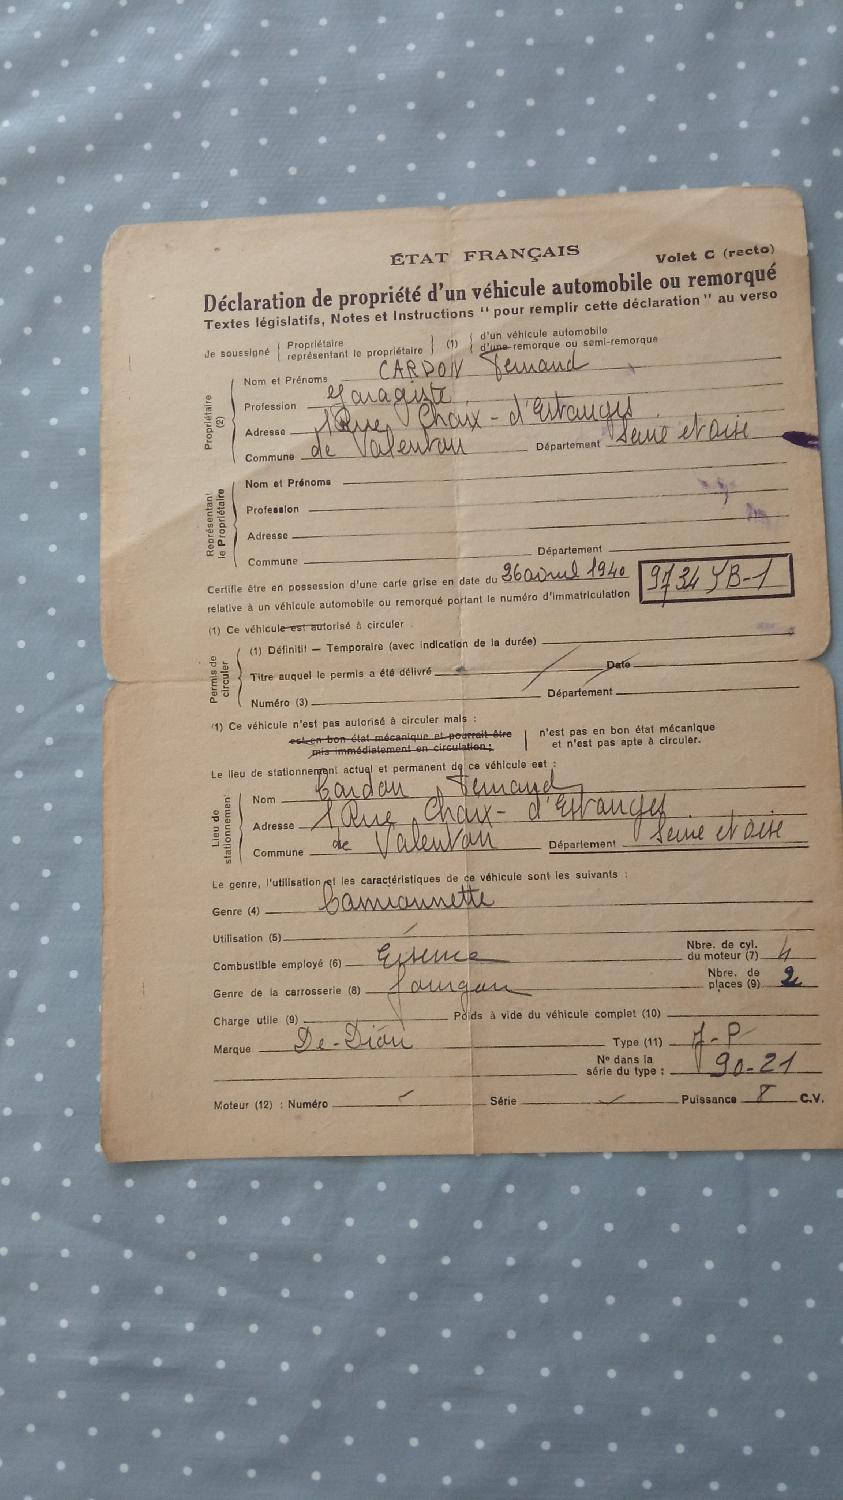 ÉTAT FRANÇAIS
Volet C (recto)
Déclaration de propriété d'un véhicule automobile ou remorqué
Textes législatifs, Notes et Instructions " pour remplir cette déclaration " au verso
Je soussigné Propriétaire représentant le propriétaire (1) d'un véhicule automobile d'une remorque ou semi-remorque
Propriétaire (2)
Nom et Prénoms CARDON Fernand
Profession garagiste
Adresse 1 Rue Chaix-d'Estanges
Commune de Valenton Département Seine et Oise
Représentant le Propriétaire
Nom et Prénoms
Profession
Adresse
Commune Département
Certifie être en possession d'une carte grise en date du 26 avril 1940
relative à un véhicule automobile ou remorqué portant le numéro d'immatriculation 9734 YB-1
(1) Ce véhicule est autorisé à circuler
Permis de circuler
(1) Définitif — Temporaire (avec indication de la durée)
Titre auquel le permis a été délivré Date
Numéro (3) Département
(1) Ce véhicule n'est pas autorisé à circuler mais :
est en bon état mécanique et pourrait être n'est pas en bon état mécanique
mis immédiatement en circulation; et n'est pas apte à circuler.
Le lieu de stationnement actuel et permanent de ce véhicule est :
Lieu de stationnement
Nom Cardon Fernand
Adresse 1 Rue Chaix-d'Estanges
Commune de Valenton Département Seine et Oise
Le genre, l'utilisation et les caractéristiques de ce véhicule sont les suivants :
Genre (4) Camionnette
Utilisation (5)
Combustible employé (6) Essence Nbre. de cyl. du moteur (7) 4
Genre de la carrosserie (8) fourgon Nbre. de places (9) 2
Charge utile (9) Poids à vide du véhicule complet (10)
Marque De-Dion Type (11) J-P
N° dans la série du type : 90-21
Moteur (12) : Numéro Série Puissance 8 C.V.